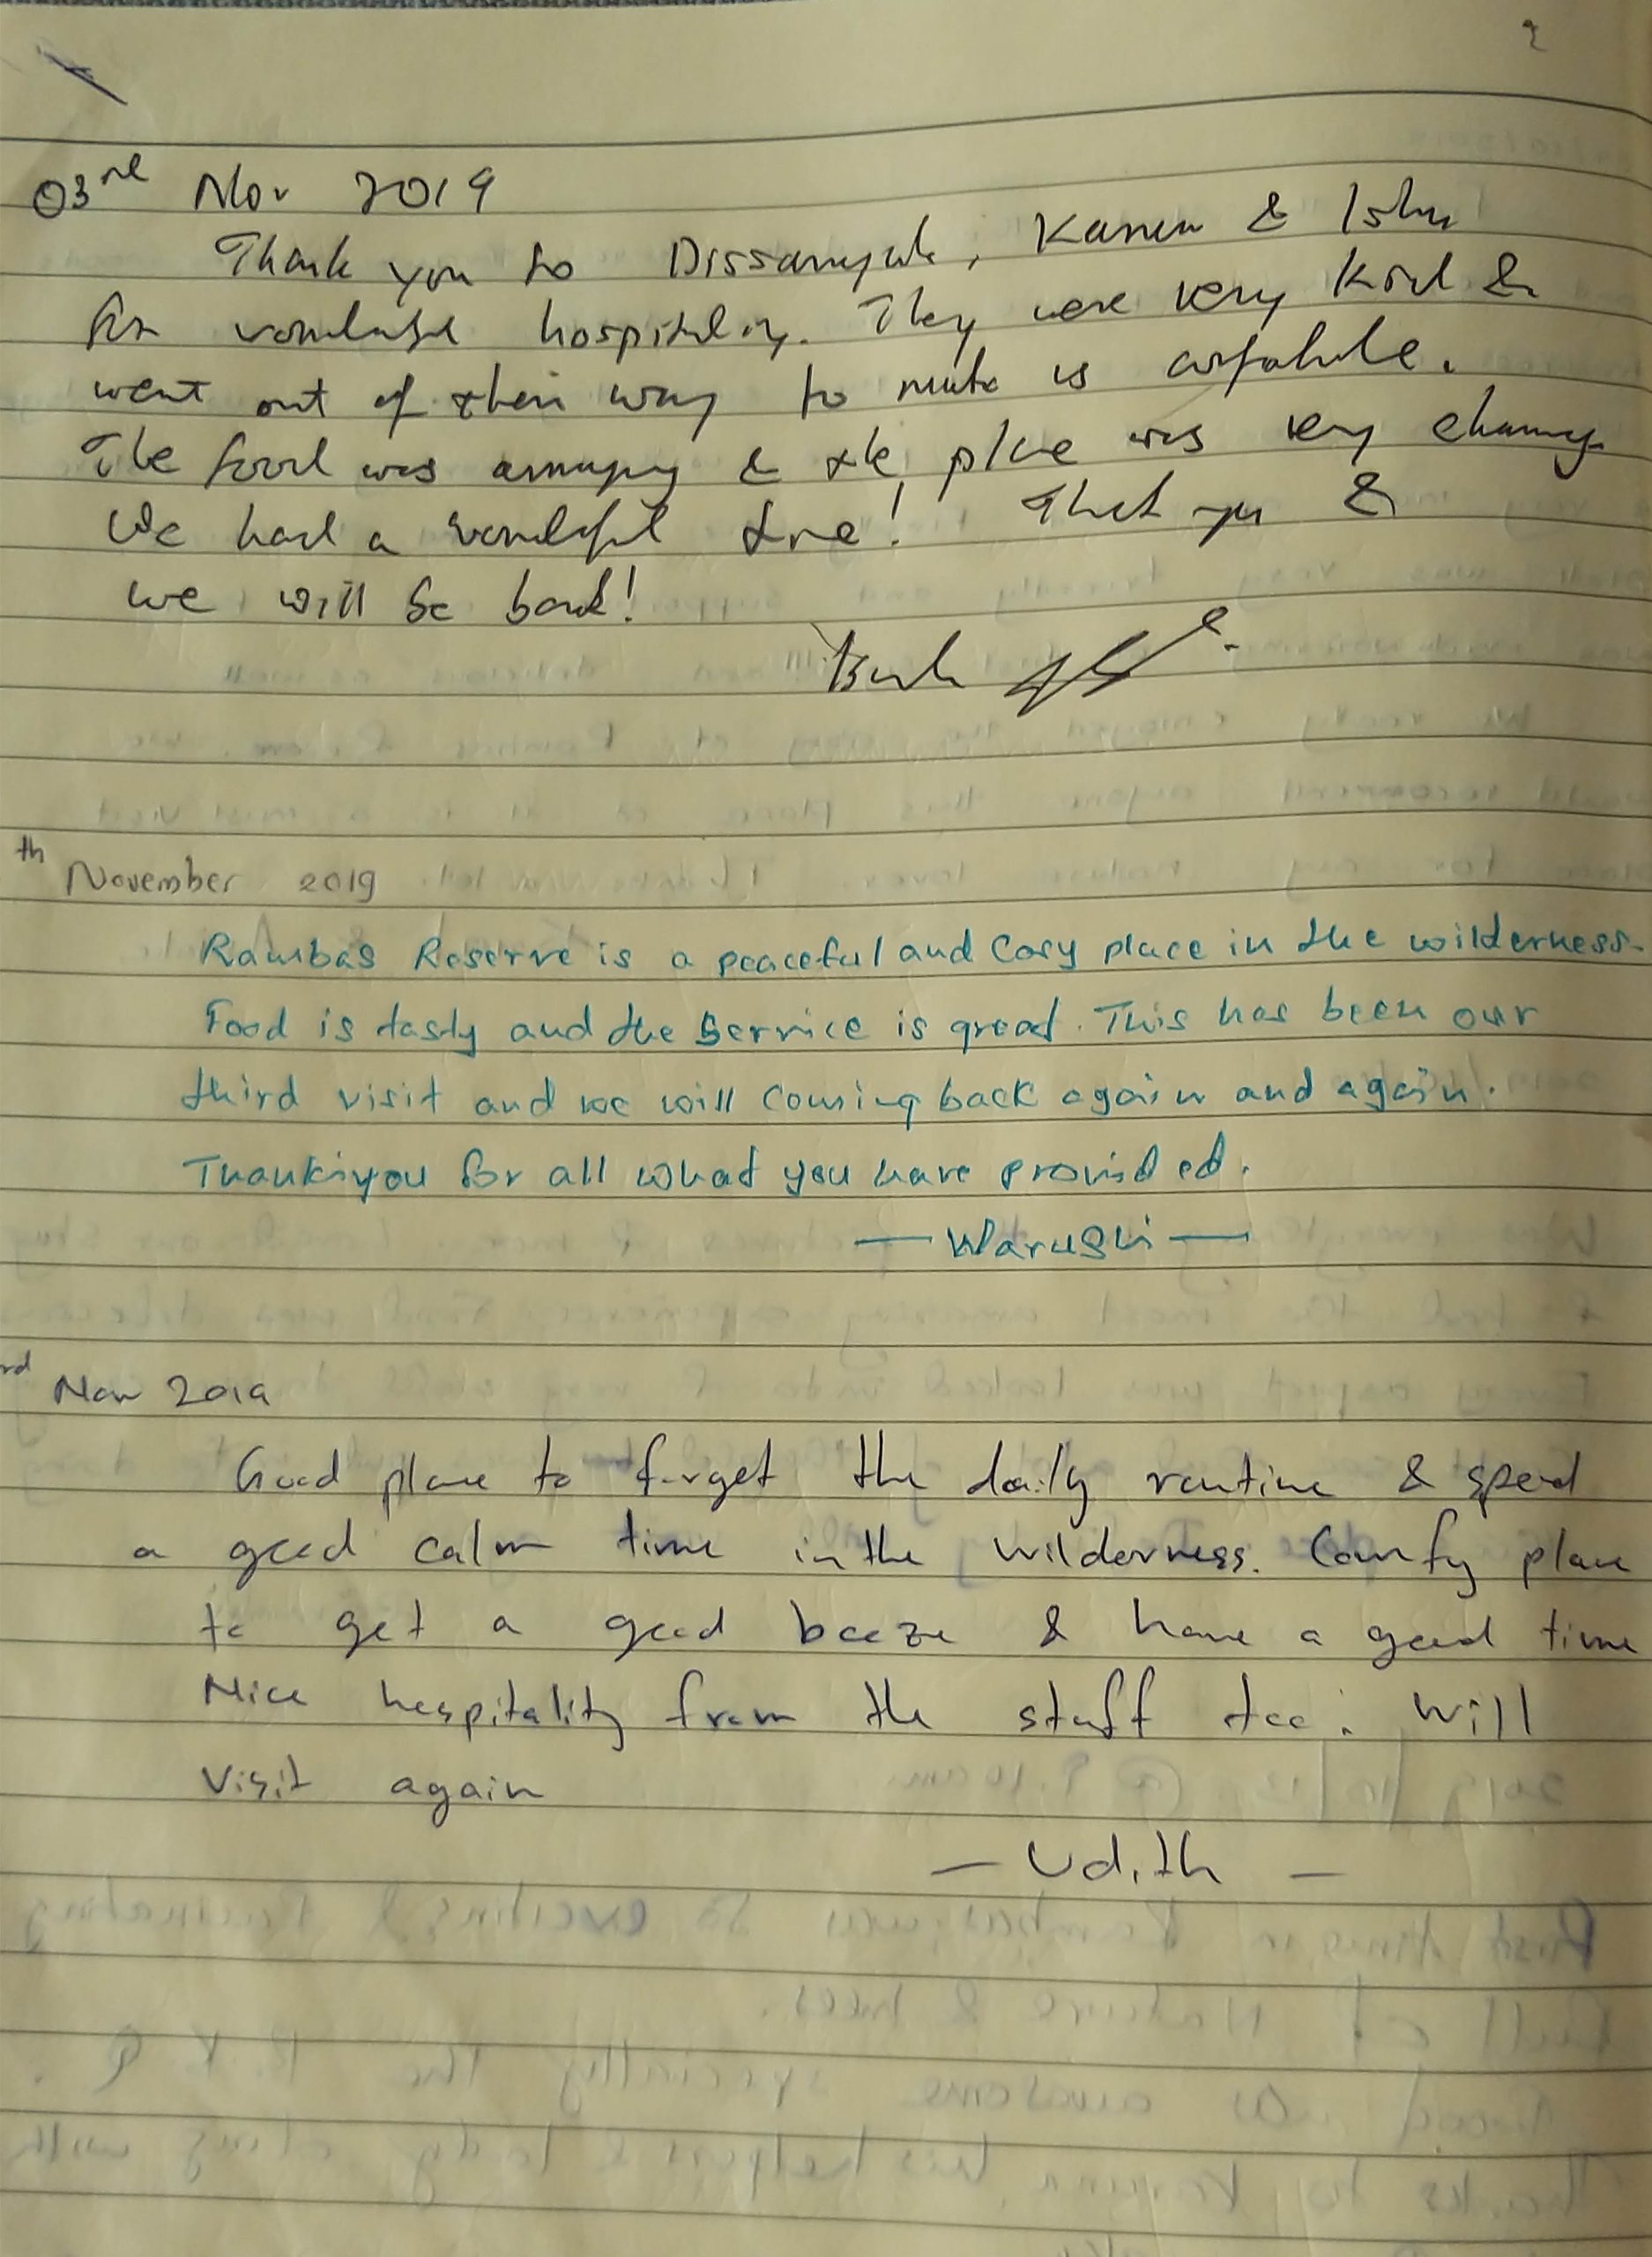 03rd Nov 2019
Thank you to Dissanayak, & Ishu
for wonderful hospitality. They were very kind &
went out of their way to make us comfortable.
The food was amazing & the place was very charming.
We had a wonderful time! Thank you &
we will be back!
th November 2019
Rambas Reserve is a peaceful and Cosy place in the wilderness.
Food is tasty and the Service is great. This has been our
third visit and we will Coming back again and again.
Thank you for all what you have provided.
— Warushi —
rd Nov 2019
Good place to forget the daily routine & spend
a good calm time in the wilderness. Comfy place
to get a good booze & have a good time
Nice hospitality from the staff too. Will
visit again
— Udith —